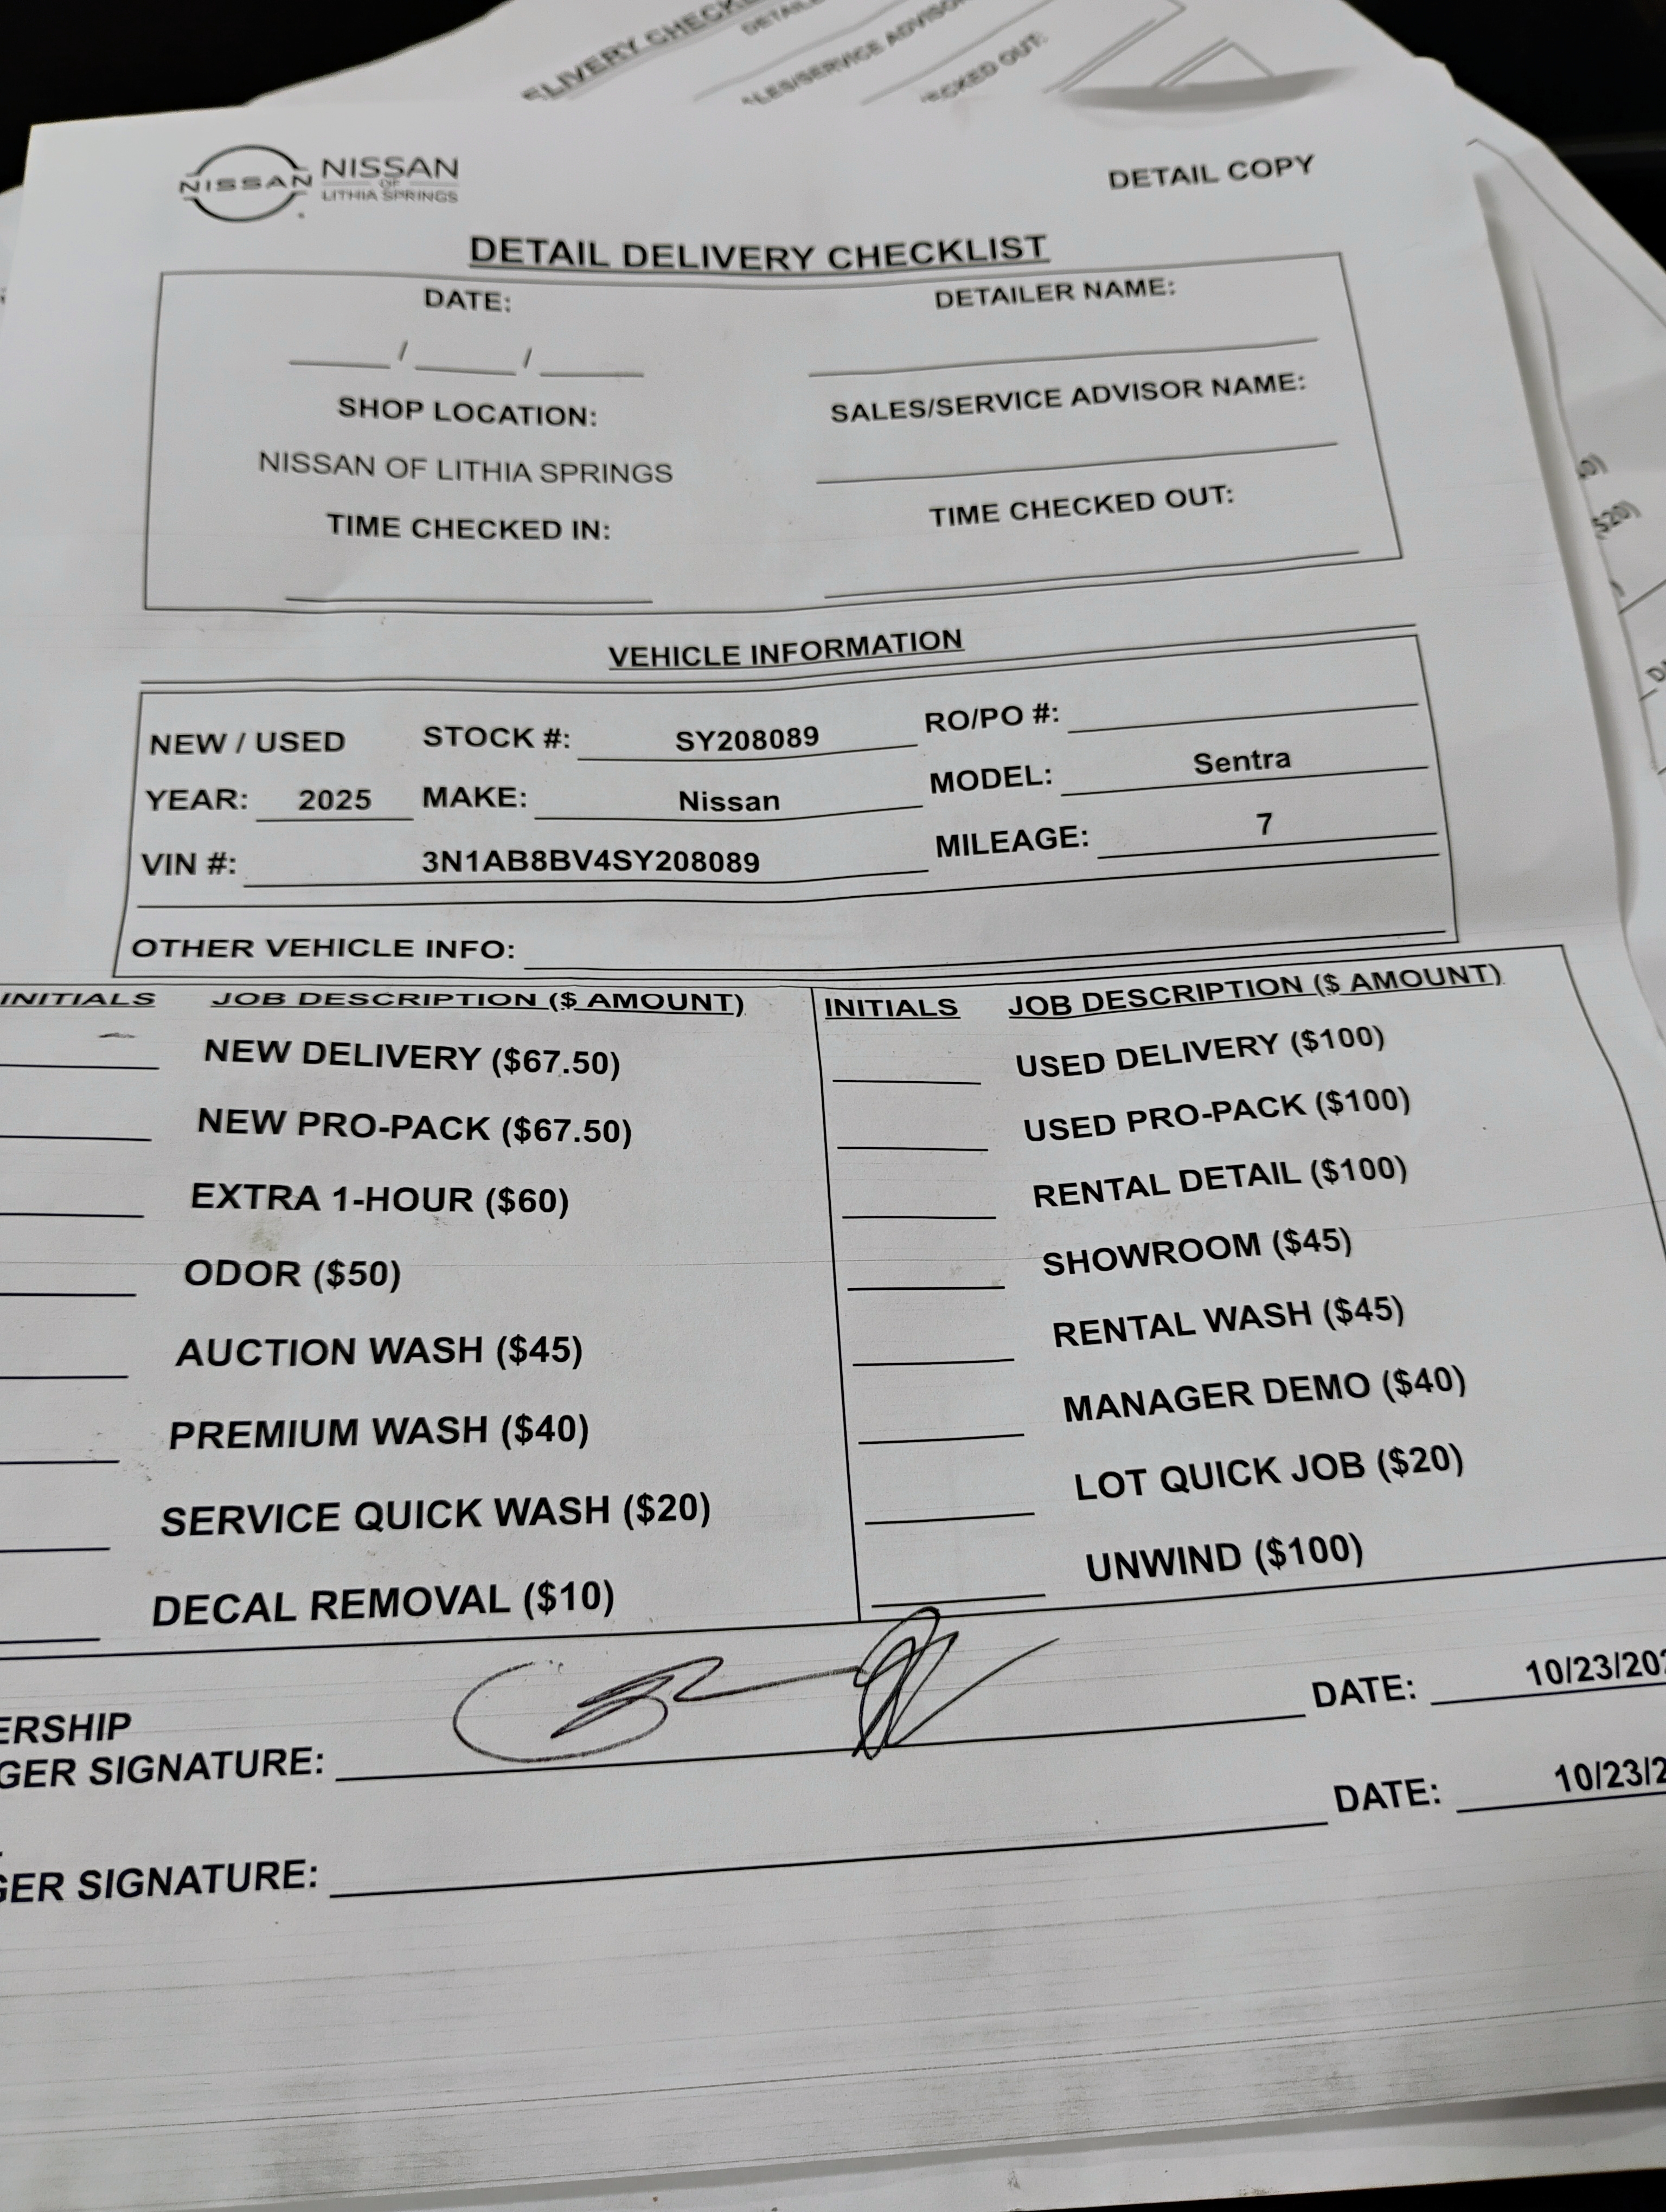 DETAIL COPY
NISSAN NISSAN
OF
LITHIA SPRINGS
DETAIL DELIVERY CHECKLIST
DATE: DETAILER NAME:
/ /
SHOP LOCATION: SALES/SERVICE ADVISOR NAME:
NISSAN OF LITHIA SPRINGS
TIME CHECKED IN: TIME CHECKED OUT:
VEHICLE INFORMATION
NEW / USED STOCK #: SY208089 RO/PO #:
YEAR: 2025 MAKE: Nissan MODEL: Sentra
VIN #: 3N1AB8BV4SY208089 MILEAGE: 7
OTHER VEHICLE INFO:
INITIALS JOB DESCRIPTION ($ AMOUNT) INITIALS JOB DESCRIPTION ($ AMOUNT)
NEW DELIVERY ($67.50) USED DELIVERY ($100)
NEW PRO-PACK ($67.50) USED PRO-PACK ($100)
EXTRA 1-HOUR ($60) RENTAL DETAIL ($100)
ODOR ($50) SHOWROOM ($45)
AUCTION WASH ($45) RENTAL WASH ($45)
PREMIUM WASH ($40) MANAGER DEMO ($40)
SERVICE QUICK WASH ($20) LOT QUICK JOB ($20)
DECAL REMOVAL ($10) UNWIND ($100)
ERSHIP
GER SIGNATURE: DATE: 10/23/202
GER SIGNATURE: DATE: 10/23/2